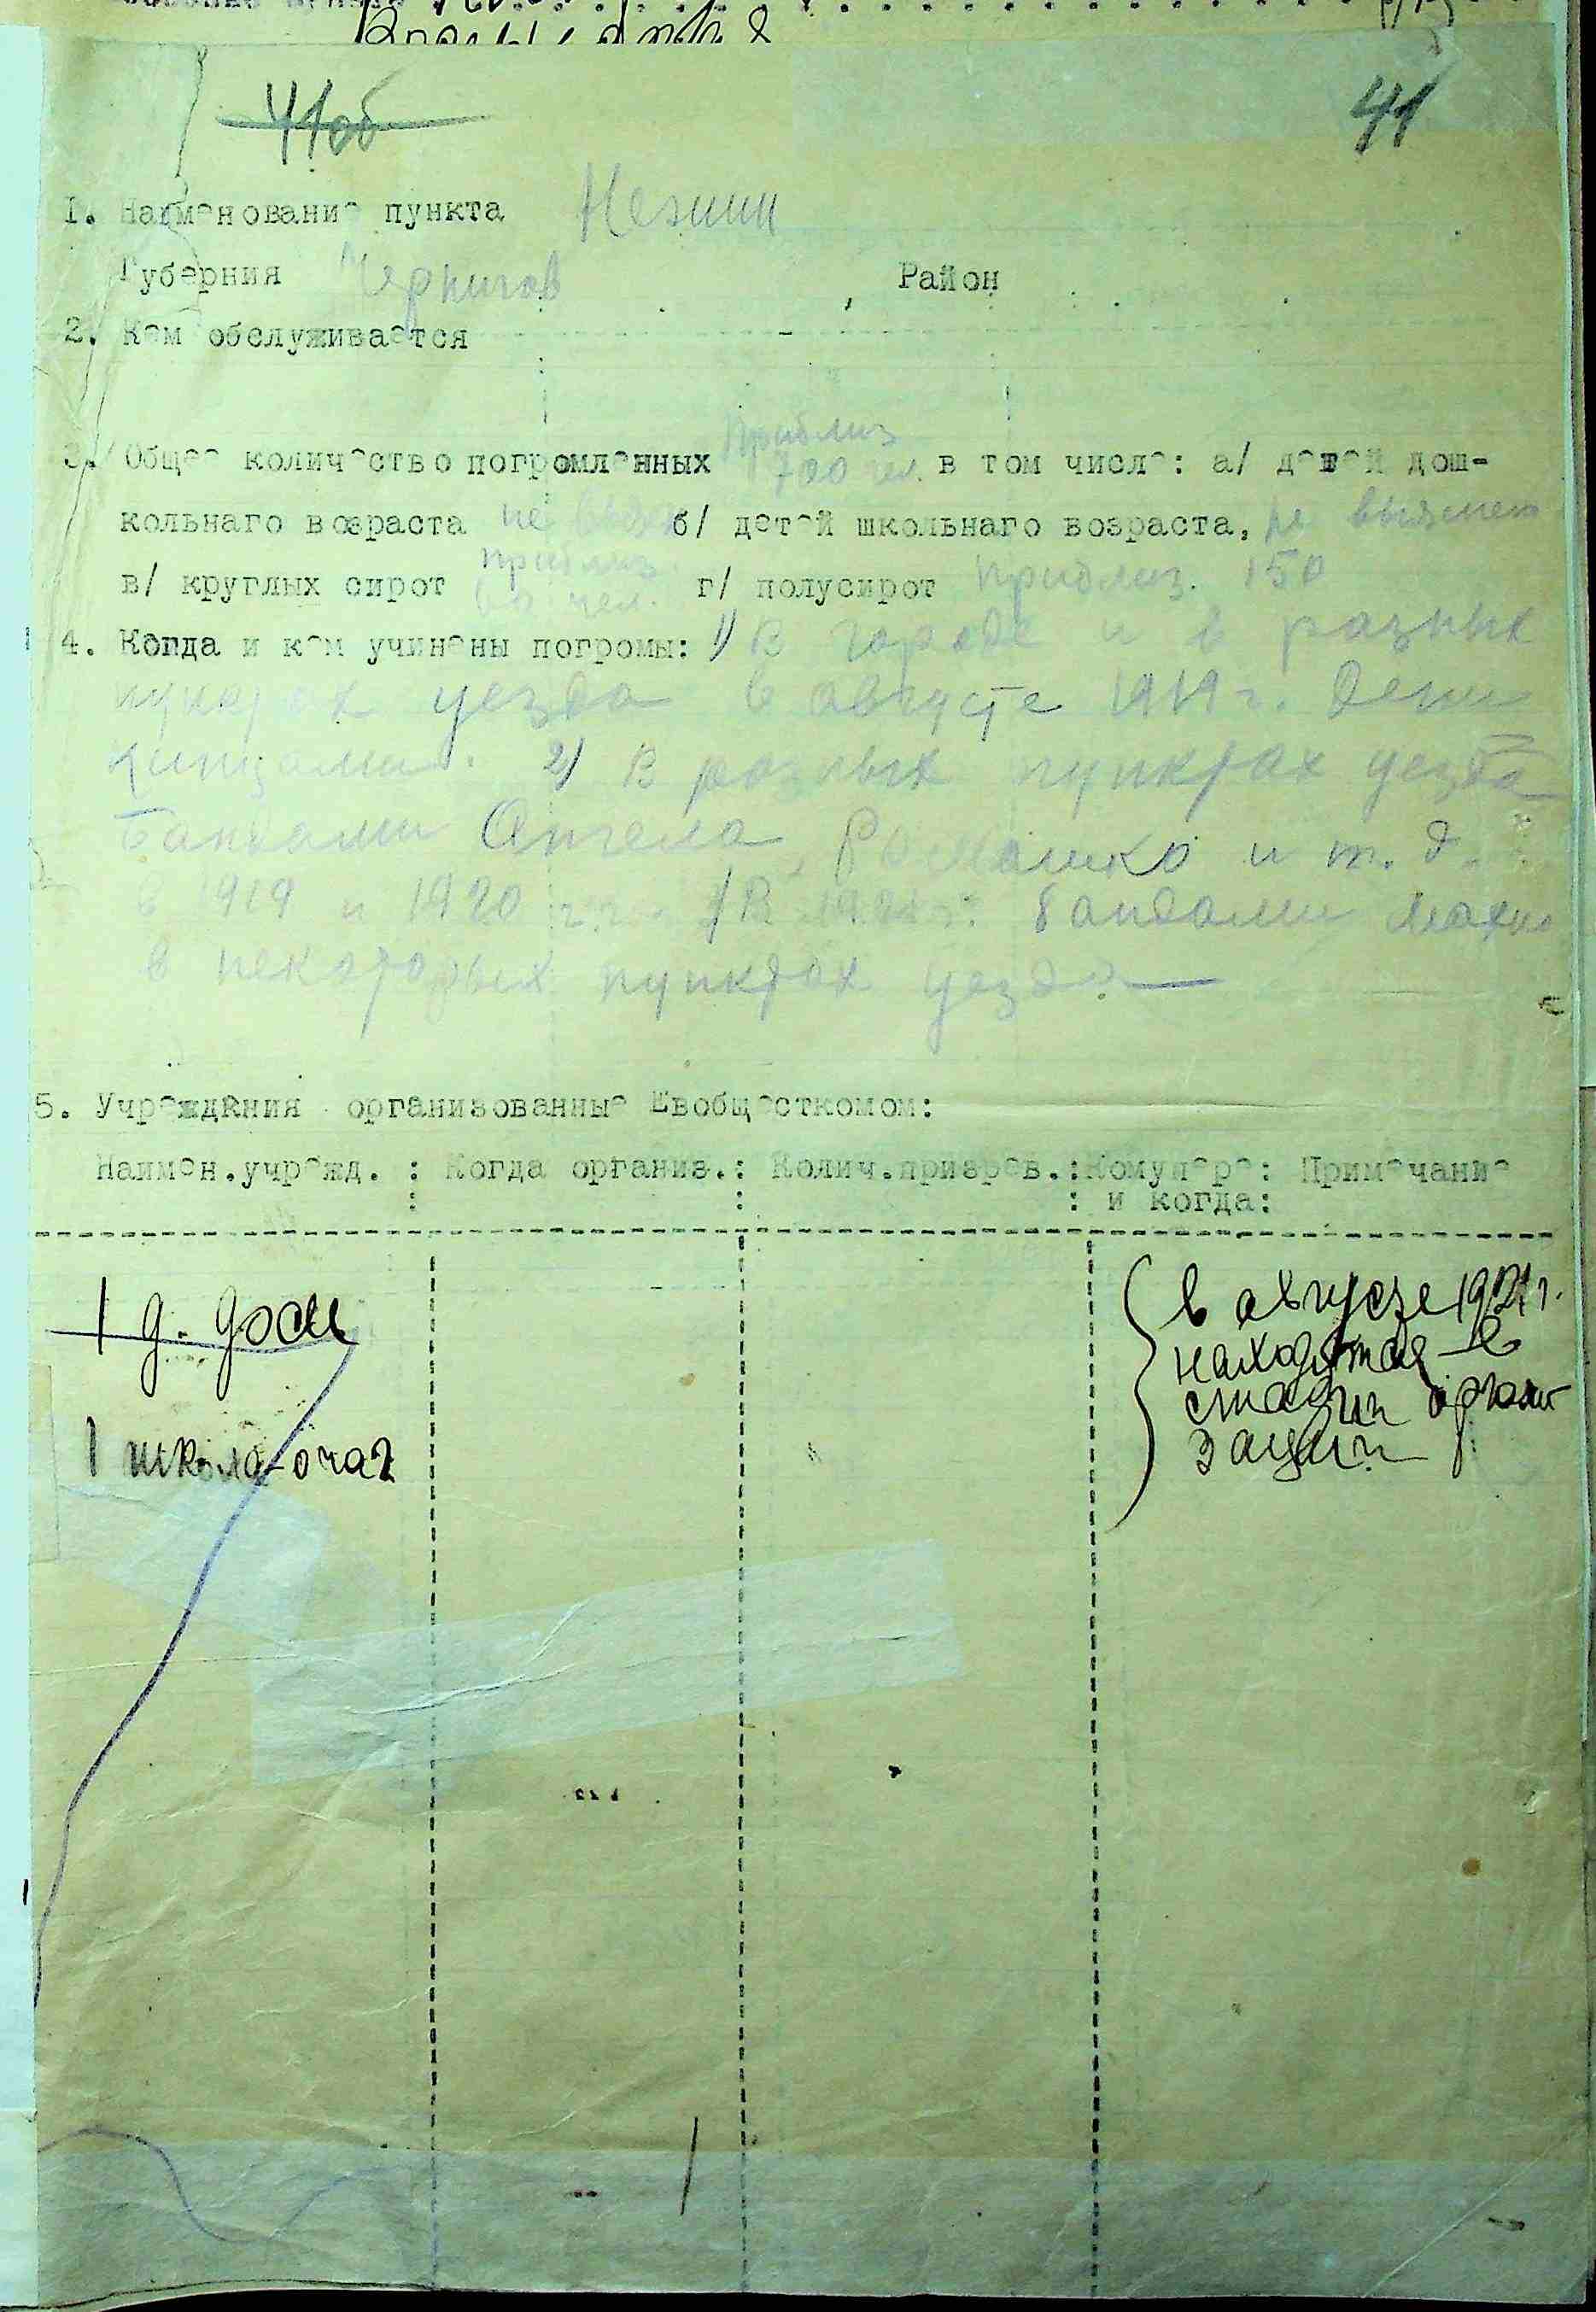 41об
41
1. Наименование пункта Нежин
Губерния Чернигов , Район
2. Кем обслуживается
3. Общее количество погромленных приблиз. 700 чел. в том числе: а/ детей дош-
кольнаго возраста не б/ детей школьнаго возраста, не выяснен
в/ круглых сирот приблиз. чел. г/ полусирот приблиз. 150
4. Когда и кем учинены погромы: 1) В городе и в разных
пунктах уезда в августе 1919 г. Дени
кинцами. 2) В разных пунктах уезда
бандами Ангела, Ромашко и т. д.
в 1919 и 1920 г.г. В 1921 г. бандами Махно
в некоторых пунктах уезда —
5. Учреждения организованные Евобщесткомом:
Наимен.учрежд. : Когда организ.: Колич.призрев.: Кому пере: Примечание
: : : и когда:
1 д. дом
1 школа-очаг
в августе 1921 г.
находятся в
стадии органи
зации